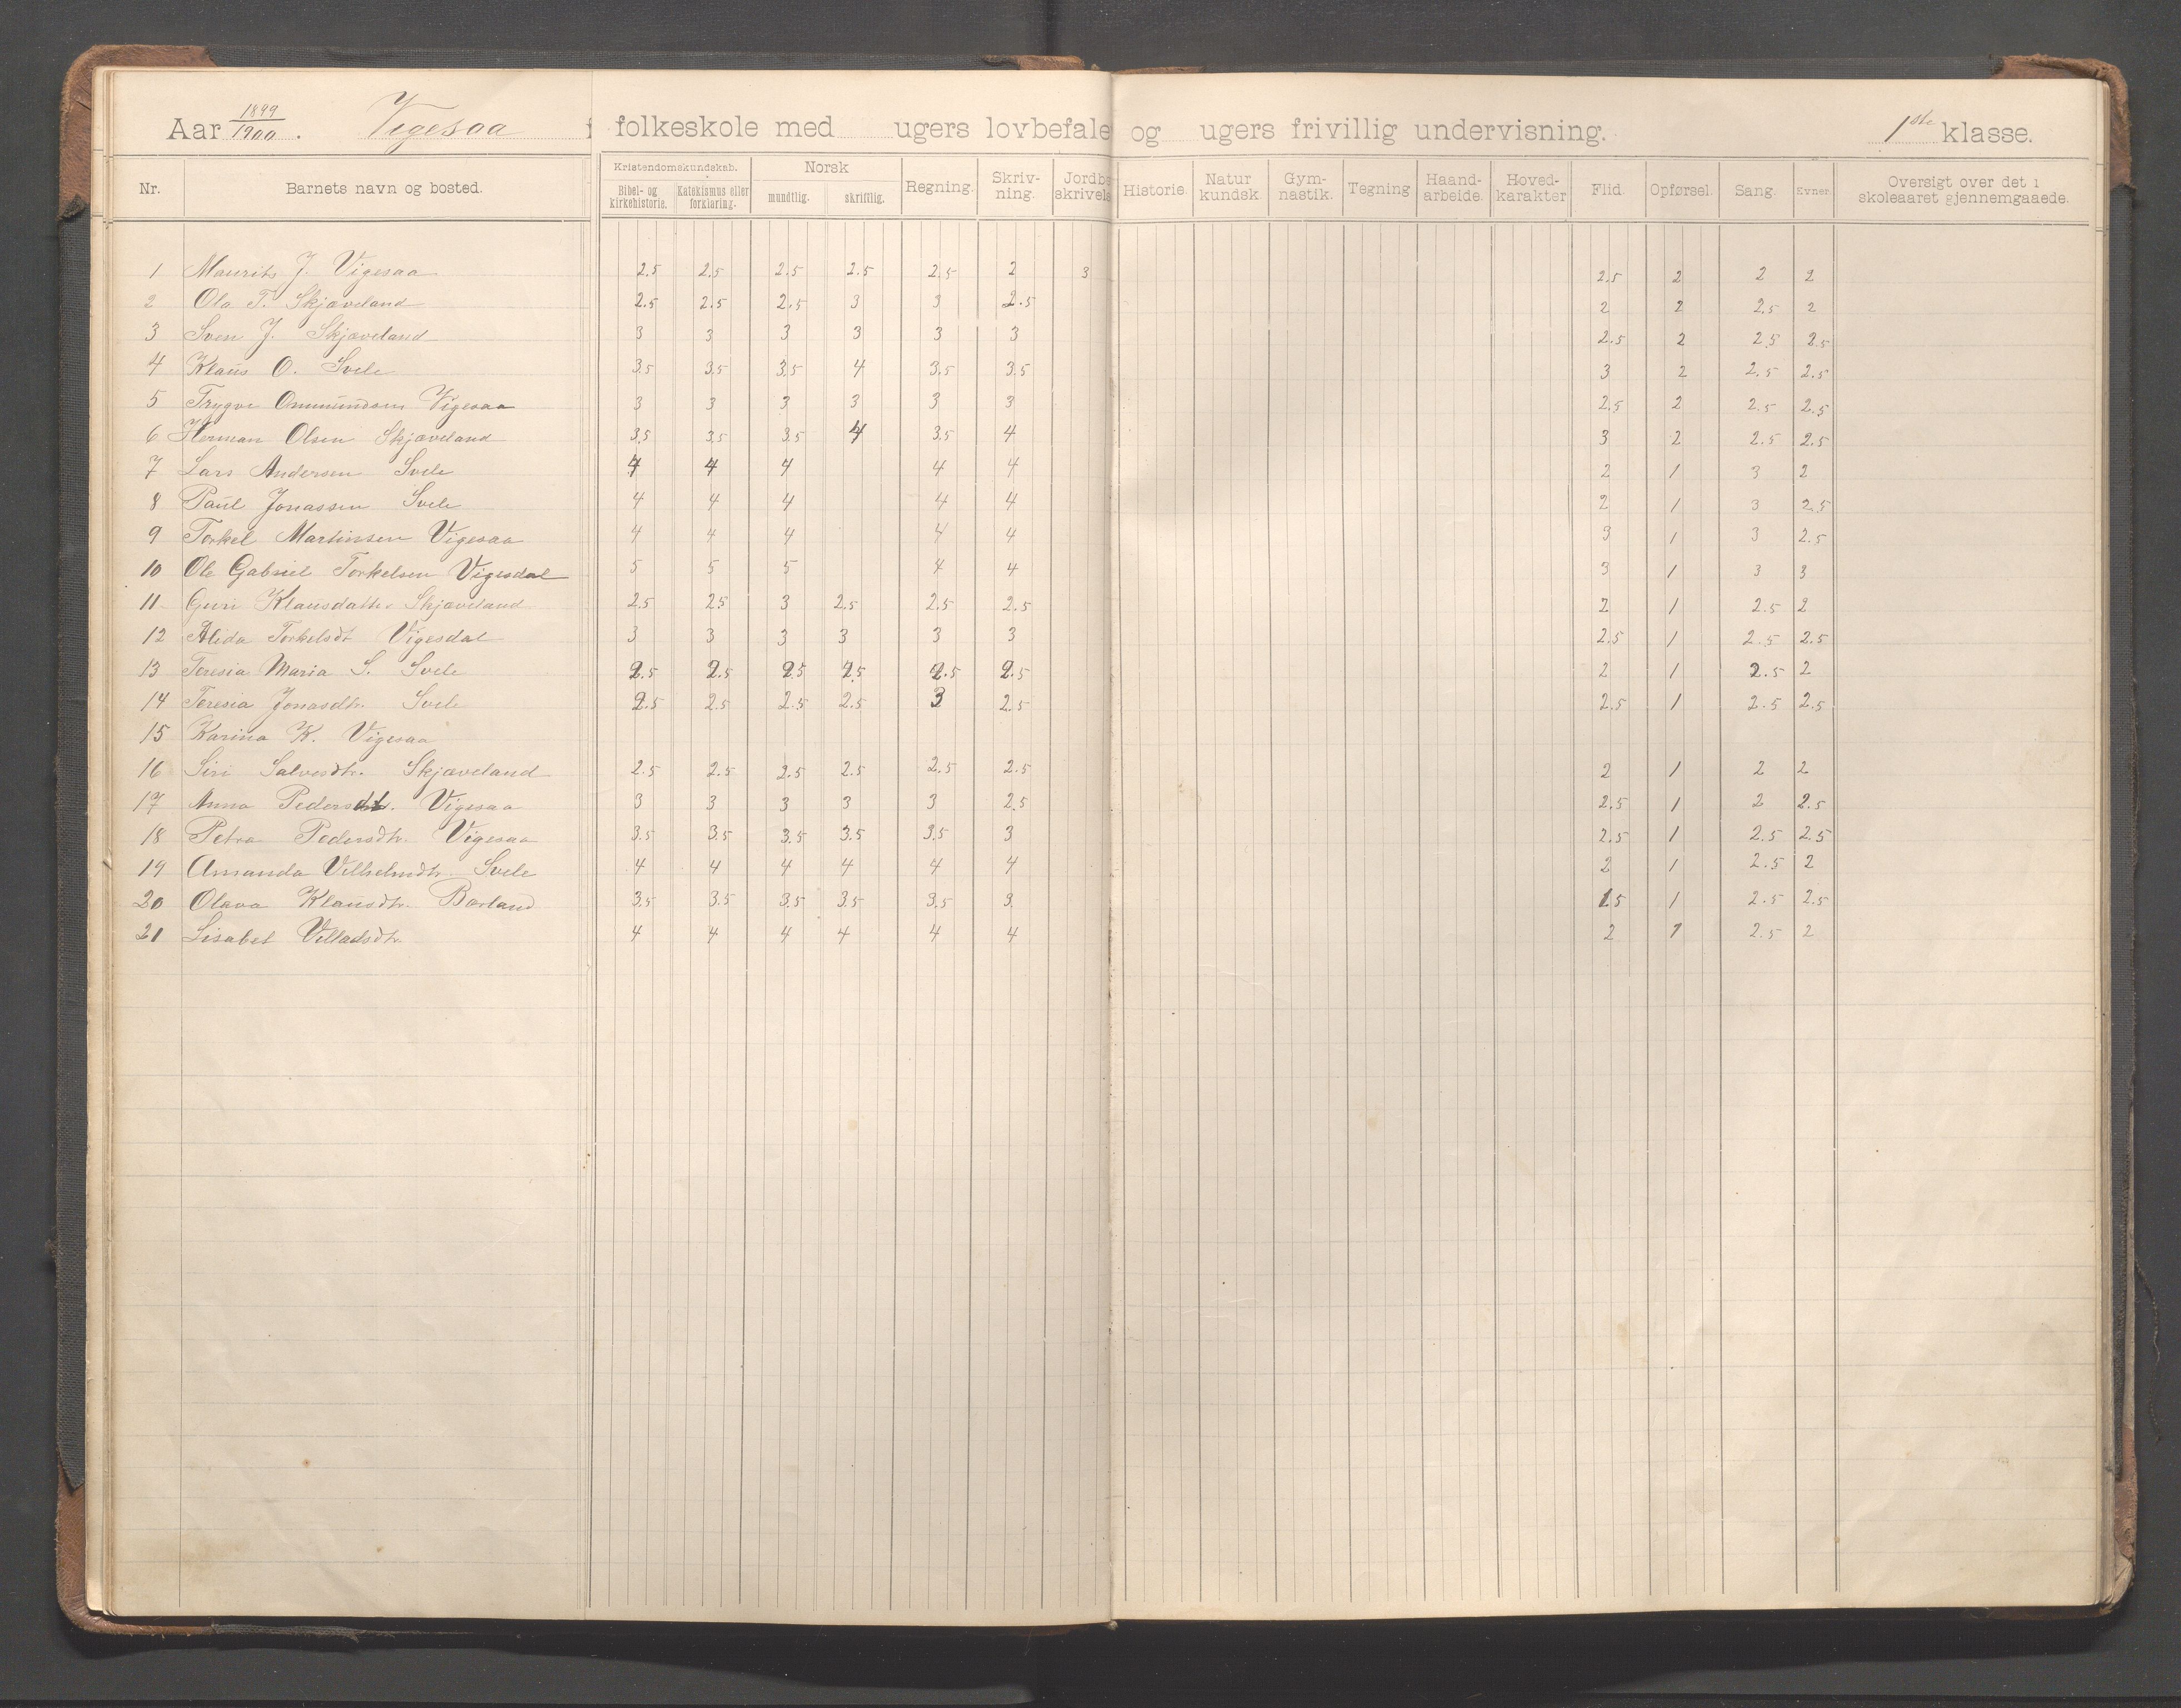 Aar 1899/1900. Vigesaa folkeskole med ugers lovbefale og ugers frivillig undervisning. 1ste klasse.
Nr. Barnets navn og bosted. Kristendomskundskab. Bibel- og kirkehistorie. Katekismus eller forklaring. Norsk mundtlig. skriftlig. Regning. Skriv-ning. Jordbs skrivels Historie. Natur kundsk. Gym-nastik. Tegning Haand-arbeide. Hoved-karakter Flid. Opførsel. Sang. Evner. Oversigt over det i skoleaaret gjennemgaaede.
1 Maurits J. Vigesaa 2.5 2.5 2.5 2.5 2.5 2 3 2.5 2 2 2
2 Ola T. Skjæveland 2.5 2.5 2.5 3 3 2.5 2 2 2.5 2
3 Sven J. Skjæveland 3 3 3 3 3 3 2.5 2 2.5 2.5
4 Klaus O. Svele 3.5 3.5 3.5 4 3.5 3.5 3 2 2.5 2.5
5 Trygve Ommundsen Vigesaa 3 3 3 3 3 3 2.5 2 2.5 2.5
6 Herman Olsen Skjæveland 3.5 3.5 3.5 4 3.5 4 3 2 2.5 2.5
7 Lars Andersen Svele 4 4 4 4 4 2 1 3 2
8 Paul Jonassen Svele 4 4 4 4 4 2 1 3 2.5
9 Torkel Martinsen Vigesaa 4 4 4 4 4 3 1 3 2.5
10 Ole Gabriel Torkelsen Vigesdal 5 5 5 4 4 3 1 3 3
11 Guri Klausdatter Skjæveland 2.5 2.5 3 2.5 2.5 2.5 2 1 2.5 2
12 Alida Torkelsdt Vigesdal 3 3 3 3 3 3 2.5 1 2.5 2.5
13 Teresia Maria S. Svele 2.5 2.5 2.5 2.5 2.5 2.5 2 1 2.5 2
14 Teresia Jonasdtr. Svele 2.5 2.5 2.5 2.5 3 2.5 2.5 1 2.5 2.5
15 Karina K. Vigesaa
16 Siri Salvesdtr. Skjæveland 2.5 2.5 2.5 2.5 2.5 2.5 2 1 2 2
17 Anna Pedersdt. Vigesaa 3 3 3 3 3 2.5 2.5 1 2 2.5
18 Petra Pedersdtr. Vigesaa 3.5 3.5 3.5 3.5 3.5 3 2.5 1 2.5 2.5
19 Amanda Vilhelmdtr. Svele 4 4 4 4 4 4 2 1 2.5 2
20 Olava Klausdtr. Borland 3.5 3.5 3.5 3.5 3.5 3 1.5 1 2.5 2.5
21 Lisabet Villadsdtr. 4 4 4 4 4 4 2 1 2.5 2